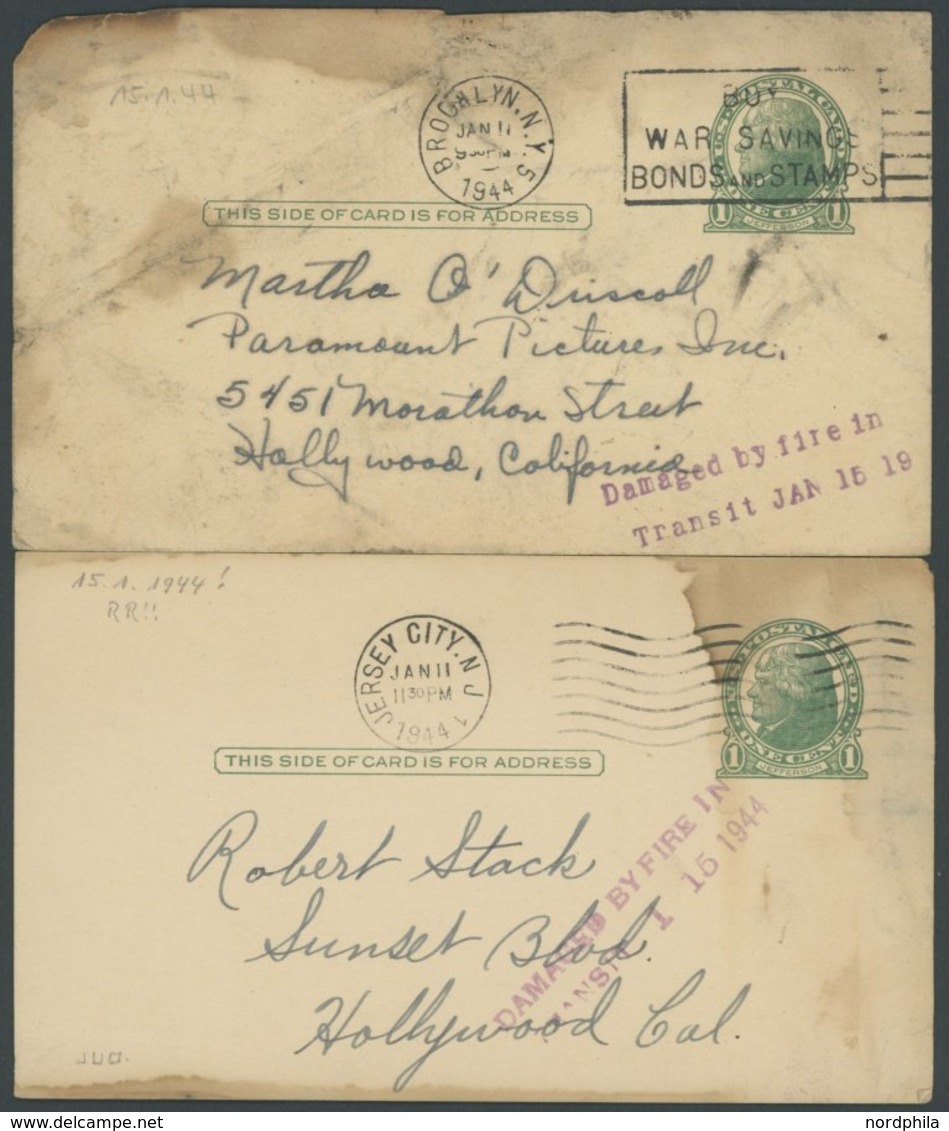 15.1.44
BROOKLYN, N.Y. 5
JAN 11
9 30 PM
1944
BUY
WAR SAVINGS
BONDS AND STAMPS
U.S. POSTAL CARD
1 ONE CENT 1
JEFFERSON
THIS SIDE OF CARD IS FOR ADDRESS
Martha O'Driscoll
Paramount Pictures Inc.
5451 Marathon Street
Hollywood, California
Damaged by fire in
Transit JAN 15 19
15.1.1944!
RR!!
JERSEY CITY, N J 1
JAN 11
11 30 PM
1944
U.S. POSTAL CARD
1 ONE CENT 1
JEFFERSON
THIS SIDE OF CARD IS FOR ADDRESS
Robert Stack
Sunset Blvd.
Hollywood Cal.
DAMAGED BY FIRE IN
RANSIT 1 15 1944
www.delcampe.net
nordphila